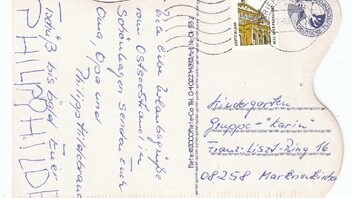 Viele liebe Urlaubsgrüße
vom Ostseestrand in
Schönhagen senden Euch
Oma, Opa und
Philipp Hildebrand
Tschüß bis bald Euer
PHILIPP HILDE
DEUTSCHLAND
Kindergarten
Gruppe "Karin"
Franz-Liszt-Ring 16
08258 Markneukirchen